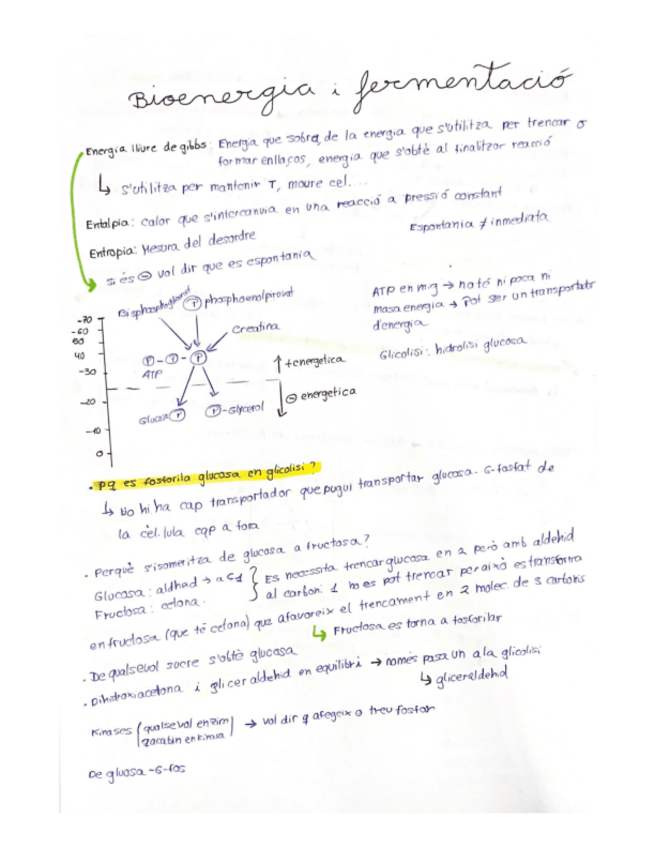 Bioenergia i fermentació
Energia lliure de gibbs: Energia que sobra, de la energia que s'utilitza per trencar o
formar enllaços, energia que s'obté al finalitzar reacció
↳ s'utilitza per mantenir T, moure cel....
Entalpia: calor que s'intercanvia en una reacció a pressió constant
Espontania ≠ inmediata
Entropia: Mesura del desordre
si és ⊖ vol dir que es espontania
Bisphosphoglicerat
Ⓟ phosphoenolpiruvat
Creatina
-70
-60
50
40
-30
-20
-10
0
Ⓟ-Ⓟ-Ⓟ
ATP
Glucosa Ⓟ
Ⓟ-Glycerol
↑ +energetica
↓ ⊖ energetica
ATP en mig → no té ni poca ni
masa energia → Pot ser un transportador
d'energia
Glicolisi: hidrolisi glucosa
· Pq es fosforila glucosa en glicolisi?
↳ No hi ha cap transportador que pugui transportar glucosa-6-fosfat de
la cèl.lula cap a fora
· Perquè s'isomeritza de glucosa a fructosa?
Glucosa: aldhad → a C1
Fructosa: cetona.
Es necessita trencar glucosa en 2 però amb aldehid
al carboni 1 no es pot trencar per això es transforma
en fructosa (que té cetona) que afavoreix el trencament en 2 molec de 3 carbonis
↳ Fructosa es torna a fosforilar
· De qualsevol sucre s'obté glucosa
· Dihidroxiacetona i gliceraldehid en equilibri → només pasa un a la glicolisi
↳ gliceraldehid
Kinases (qualsevol enzim
acabin en kinasa) → vol dir q afegeix o treu fosfat
De gluosa-6-fos